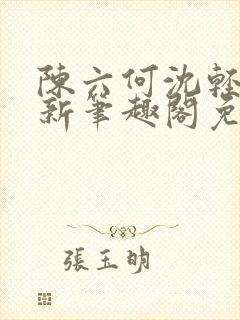 陳六何沈輕
新筆趣閣免
張玉明